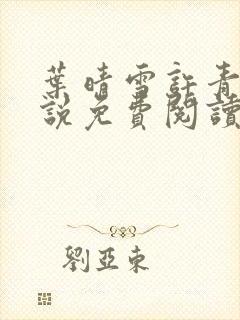 葉晴雪許青
說免費閱讀
劉亞東